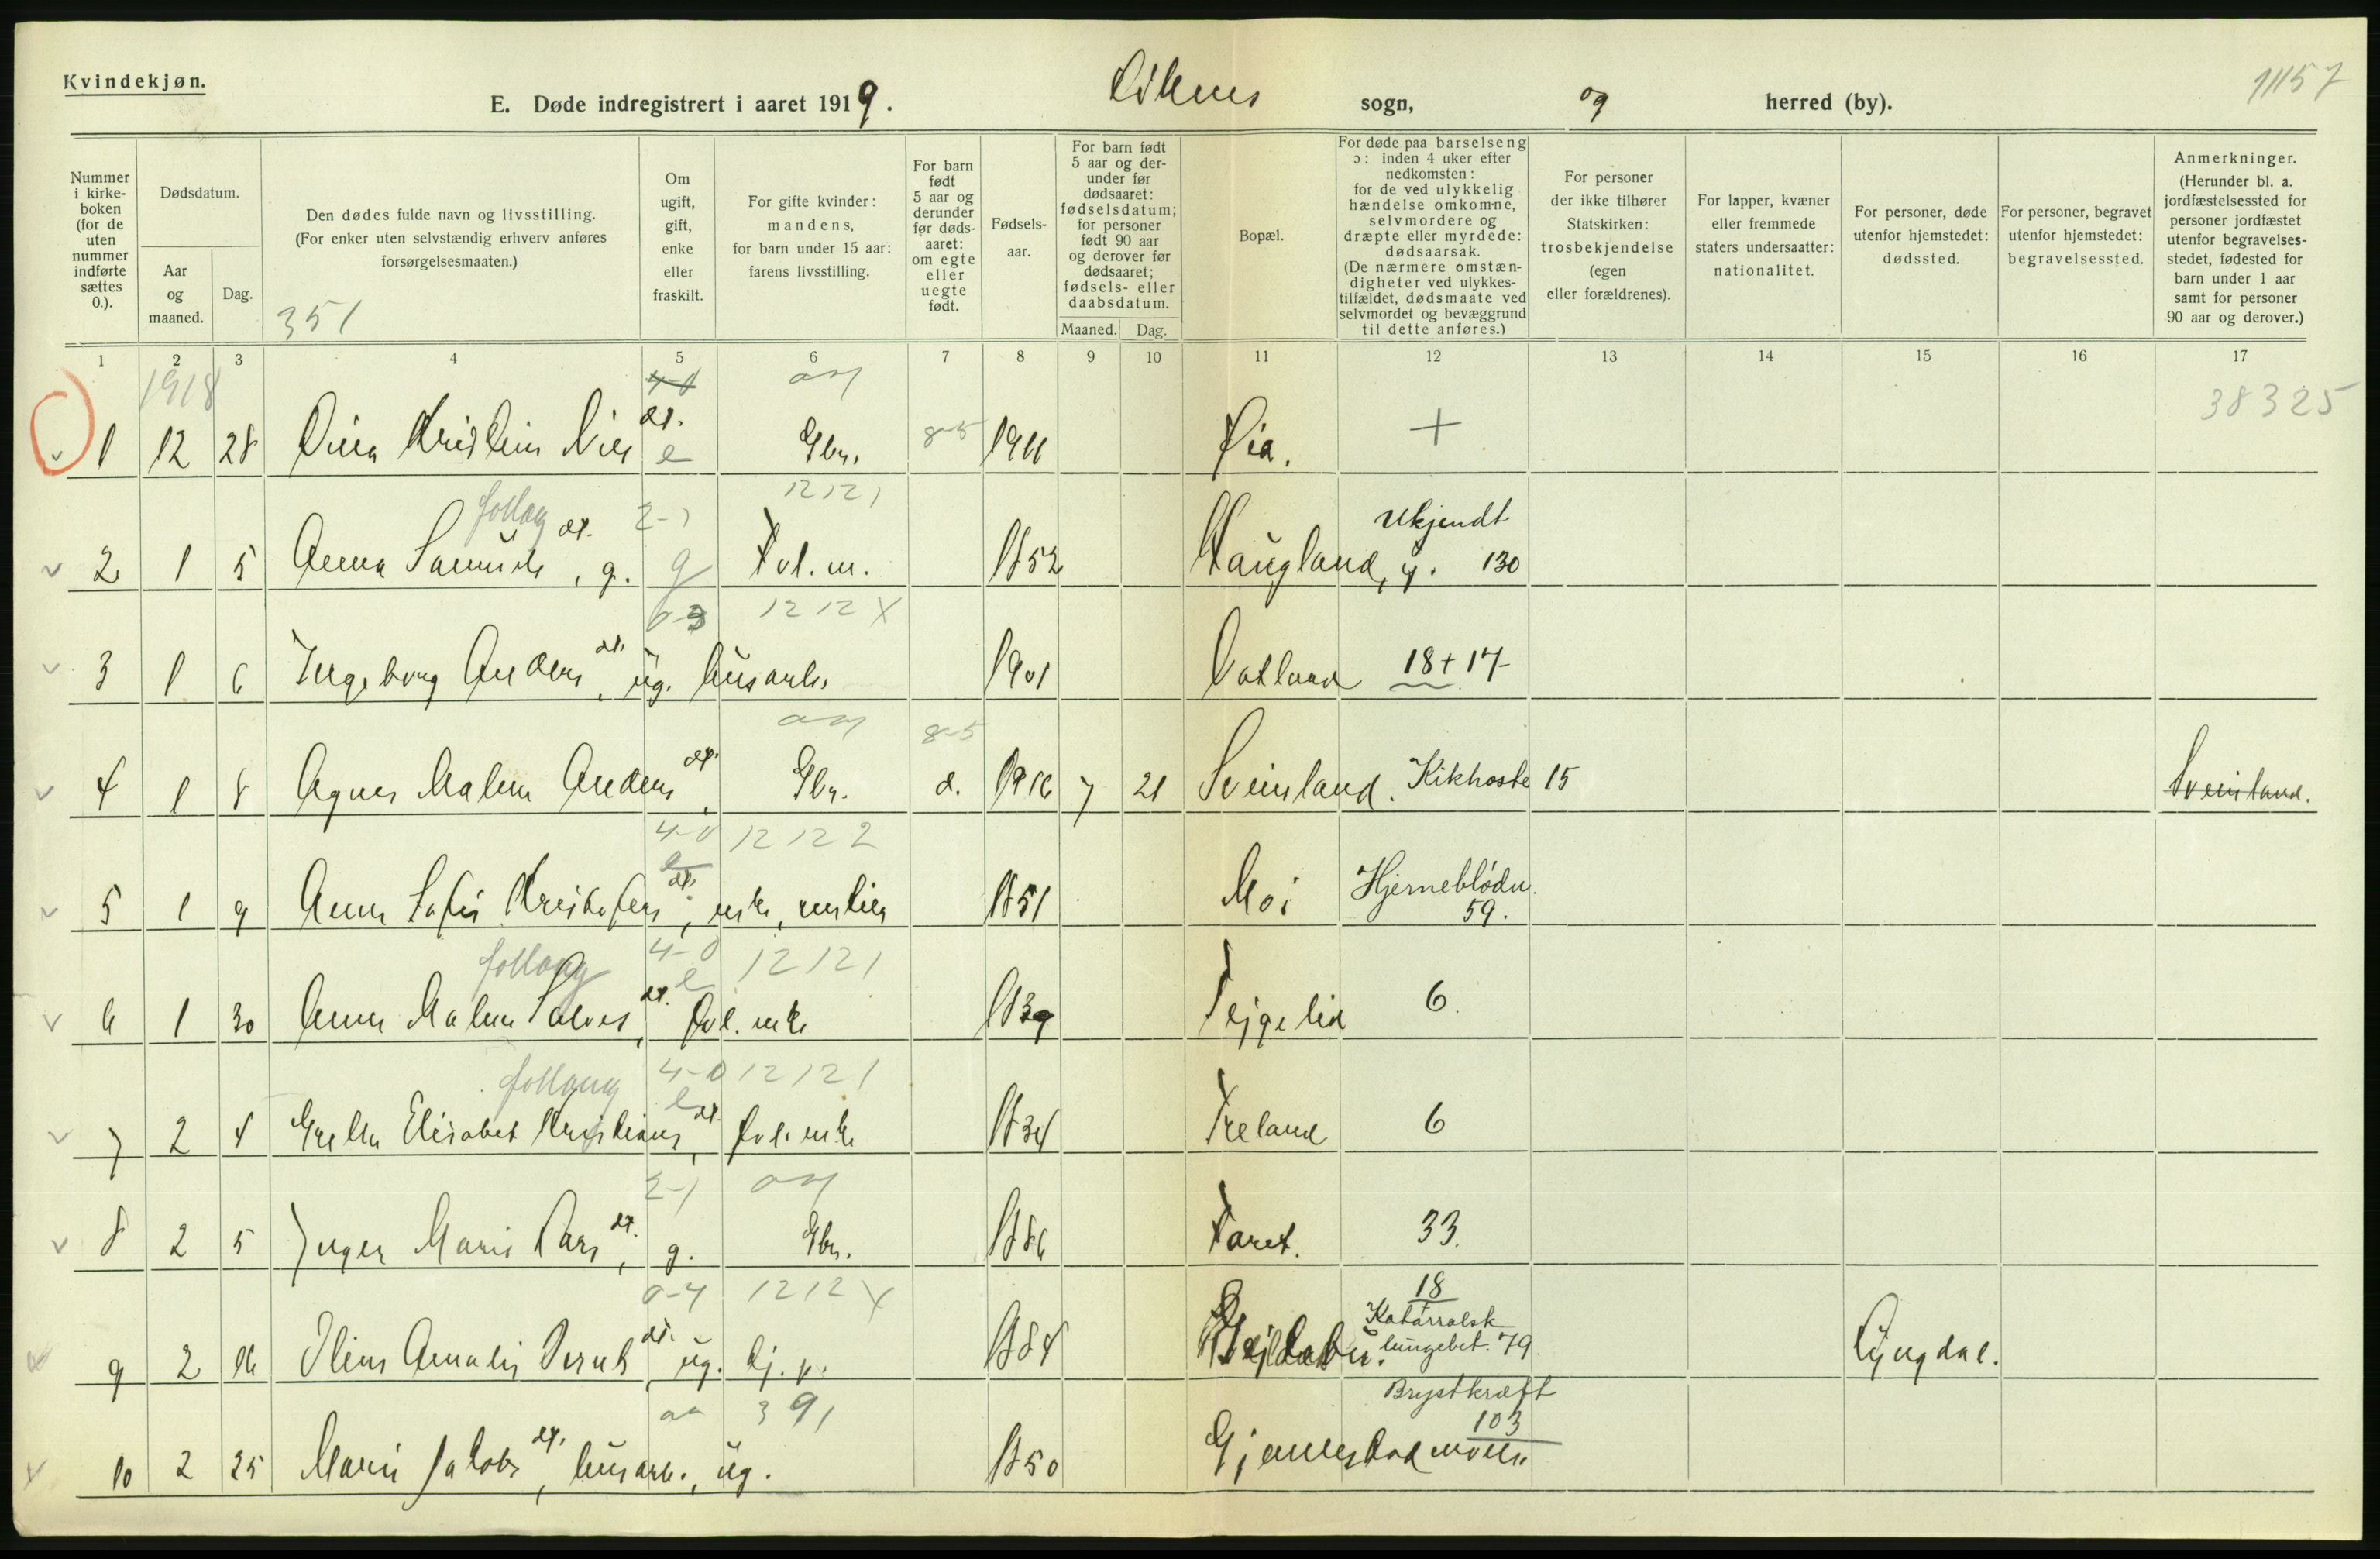 Kvindekjøn.
E. Døde indregistrert i aaret 1919. sogn, og herred (by).
11157
Nummer i kirkeboken (for de uten nummer indførte sættes 0.).
Dødsdatum.
Aar og maaned.
Dag.
Den dødes fulde navn og livsstilling.
(For enker uten selvstændig erhverv anføres forsørgelsesmaaten.)
351
Om ugift, gift, enke eller fraskilt.
For gifte kvinder: mandens, for barn under 15 aar: farens livsstilling.
For barn født 5 aar og derunder før dødsaaret: om egte eller uegte født.
Fødselsaar.
For barn født 5 aar og derunder før dødsaaret: fødselsdatum; for personer født 90 aar og derover før dødsaaret; fødsels- eller daabsdatum.
Maaned. Dag.
Bopæl.
For døde paa barselseng ɔ: inden 4 uker efter nedkomsten: for de ved ulykkelig hændelse omkomne, selvmordere og dræpte eller myrdede: dødsaarsak.
(De nærmere omstændigheter ved ulykkestilfældet, dødsmaate ved selvmordet og bevæggrund til dette anføres.)
For personer der ikke tilhører Statskirken: trosbekjendelse (egen eller forældrenes).
For lapper, kvæner eller fremmede staters undersaatter: nationalitet.
For personer, døde utenfor hjemstedet: dødssted.
For personer, begravet utenfor hjemstedet: begravelsessted.
Anmerkninger.
(Herunder bl. a. jordfæstelsessted for personer jordfæstet utenfor begravelsesstedet, fødested for barn under 1 aar samt for personer 90 aar og derover.)
1 2 3 4 5 6 7 8 9 10 11 12 13 14 15 16 17
1918 4-0 38325
1 12 28 Kristin dt. e Gbr. 8-5 1911 +
follag 2-1 12 12 1 Ukjendt
2 1 5 Anna Samuels dt., g. g 1852 Haugland, 4. 130
0-3 12 12 X
3 1 6 Ingeborg Anders dt., ug. husarb. 1901 18+17
8-5
4 1 8 Agnes Malene Anders dt., Gbr. 1916 7 21 Sveinland. Kikhoste 15 Sveinland.
4-0 12 12 2
5 1 9 Anna Sofie dt., enke, 1851 Moi Hjerneblödn. 59.
follag 4-0 e 12 12 1
6 1 30 Anna Malene Salves dt., enke 1839 6
follag 4-0 e 12 12 1
7 2 4 Elisabet Kristians dt., enke 1834 Treland 6
2-1
8 2 5 Inger Marie Lars dt., g. Gbr. 1886 Faret. 33.
0-4 12 12 X 18
9 2 16 Amalie Bernts dt., ug. tj. p. 1884 Katarralsk lungebet. 79 Lyngdal.
3 9 1 Brystkræft 103
10 2 25 Marie Jakobs dt., husarb., ug. 1850